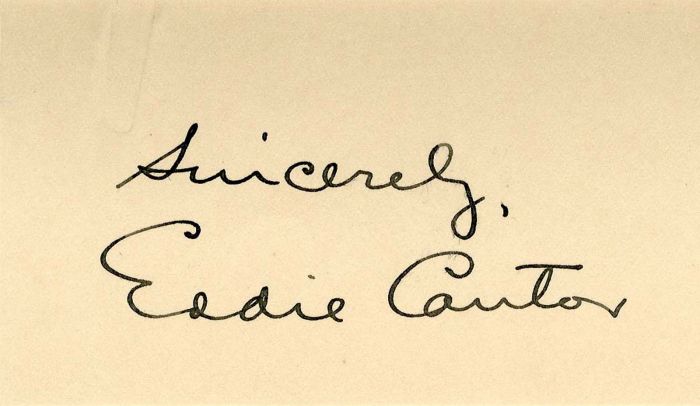 Sincerely,
Eddie Cantor